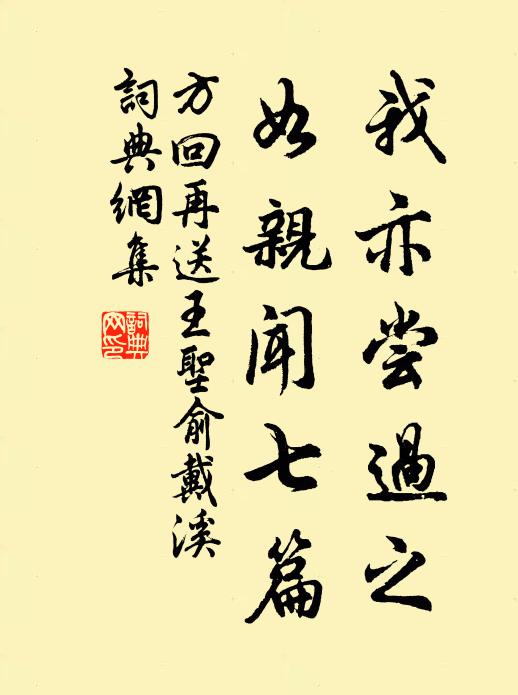 我亦嘗過之
如親聞七篇
方回再送王聖俞戴溪
詞典網集
詞典網印